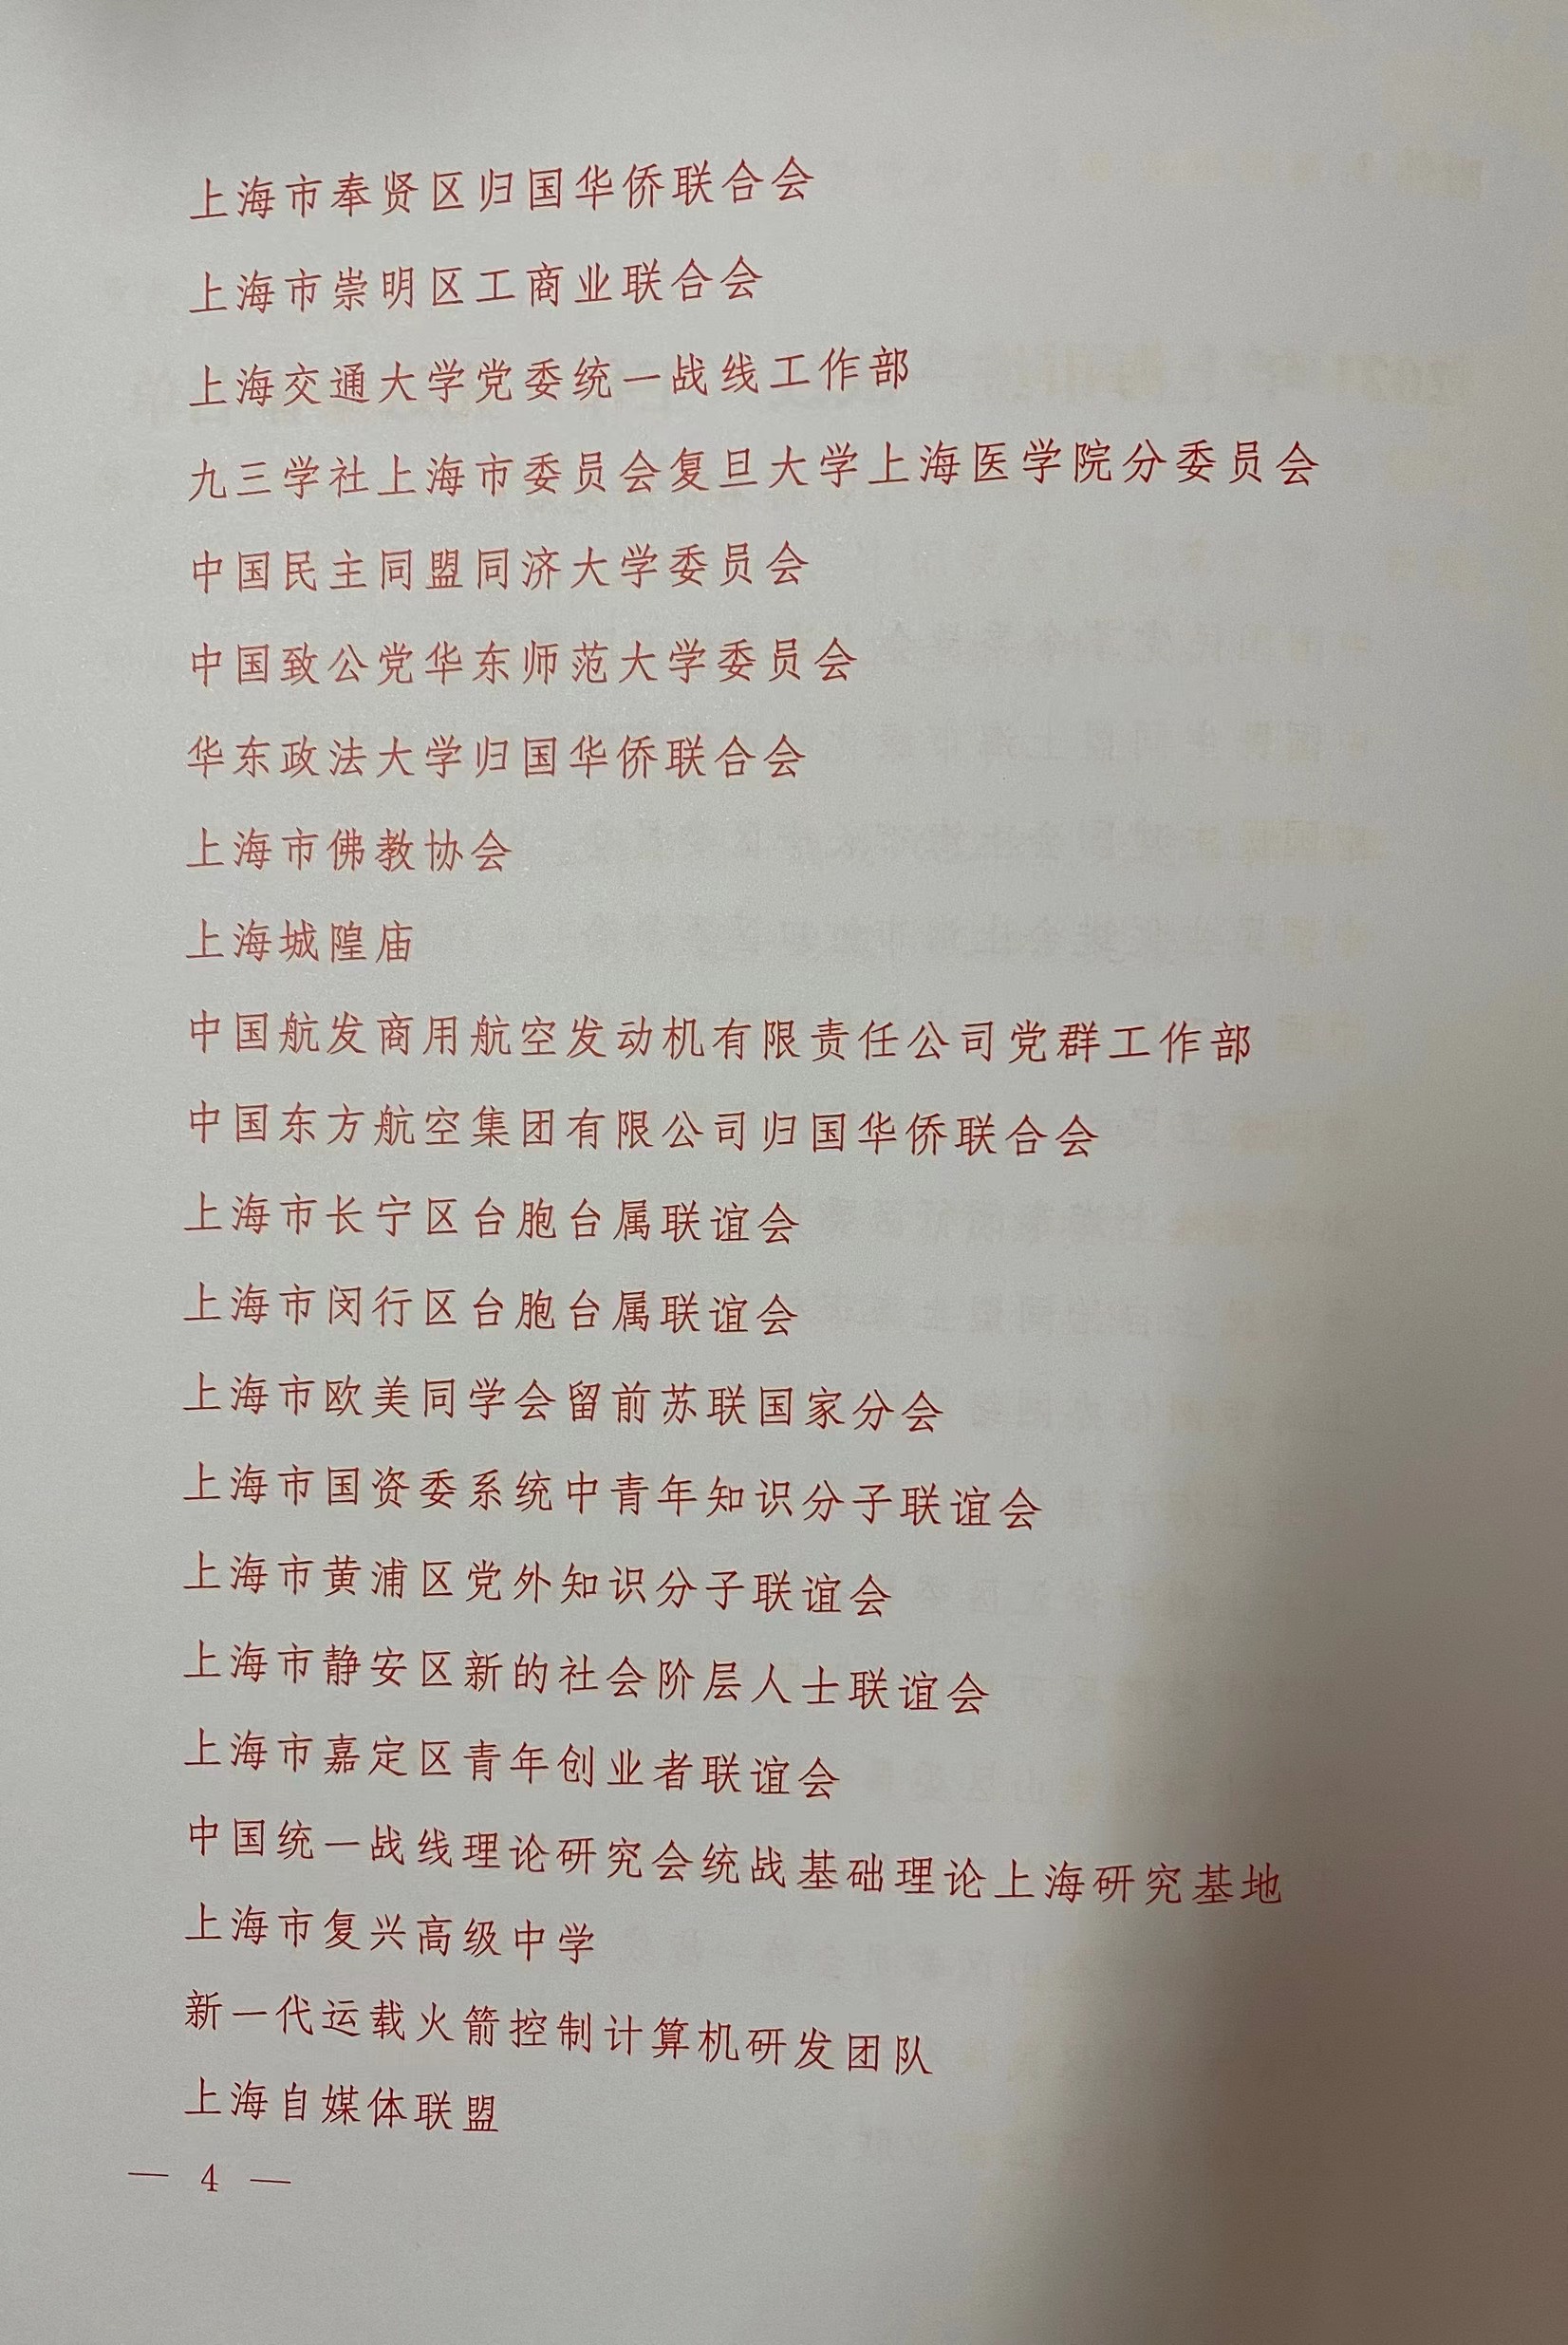 上海市奉贤区归国华侨联合会
上海市崇明区工商业联合会
上海交通大学党委统一战线工作部
九三学社上海市委员会复旦大学上海医学院分委员会
中国民主同盟同济大学委员会
中国致公党华东师范大学委员会
华东政法大学归国华侨联合会
上海市佛教协会
上海城隍庙
中国航发商用航空发动机有限责任公司党群工作部
中国东方航空集团有限公司归国华侨联合会
上海市长宁区台胞台属联谊会
上海市闵行区台胞台属联谊会
上海市欧美同学会留前苏联国家分会
上海市国资委系统中青年知识分子联谊会
上海市黄浦区党外知识分子联谊会
上海市静安区新的社会阶层人士联谊会
上海市嘉定区青年创业者联谊会
中国统一战线理论研究会统战基础理论上海研究基地
上海市复兴高级中学
新一代运载火箭控制计算机研发团队
上海自媒体联盟
— 4 —